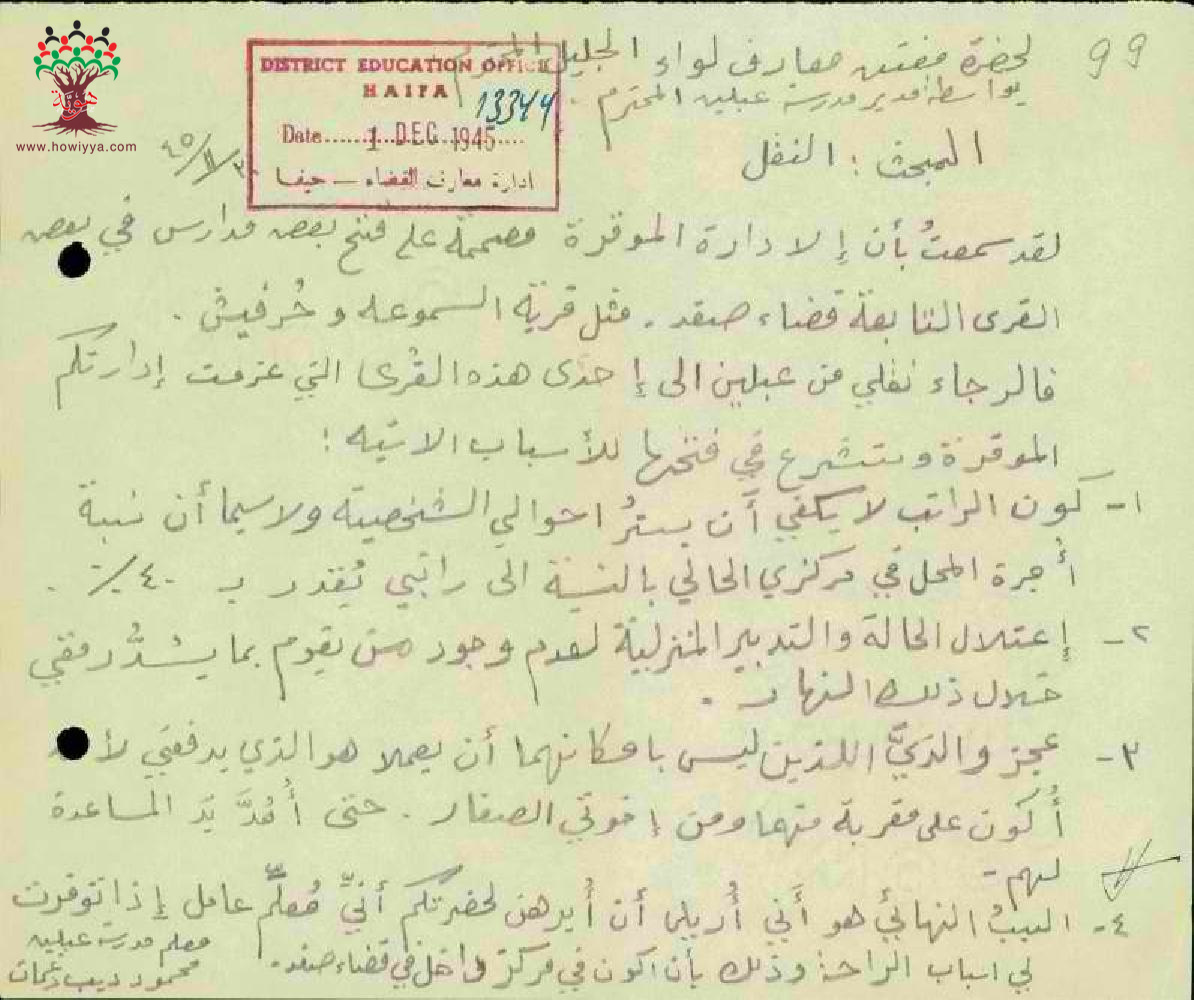 99
لحضرة مفتش معارف لواء الجليل المحترم
بواسطة مدير مدرسة عبلين المحترم.
DISTRICT EDUCATION OFFICE
HAIFA
13344
Date...... 1 DEC 1945....
ادارة معارف القضاء — حيفا
هوية
www.howiyya.com
٣٠/١١/٤٥
المبحث : النقل
لقد سمعتُ بأن إلادارة الموقرة مصممة على فتح بعض مدارس في بعض
القرى التابعة قضاء صفد. مثل قرية السموعه وحُرفيش.
فالرجاء نقلي من عبلين الى إحدى هذه القُرى التي عزمت إدارتكم
الموقرة وستشرع في فتحها للأسباب الاتيه :
١- كون الراتب لا يكفي أن يسترُ احوالي الشخصية ولاسيما أن نسبة
أُجرة المحل في مركزي الحالي بالنسبة الى راتبي يُقدر بـ ٤٠٪ .
٢- إعتلال الحالة والتدبير المنزلية لعدم وجود من يقوم بما يسُدُّ رمقي
خلال ذلك النهار.
٣- عجز والديَّ اللذين ليس بامكانهما أن يعملا هو الذي يدفعني لأن
أُكون على مقربة منهما ومن إخوتي الصغار. حتى أُمُدَّ يَد المساعدة
لهم-
٤- السببُ النهائيُ هو أَني أُريد أن أُبرهن لحضرتكم أنيِّ مُعلِّمٌ عامل إذا توفرت
لي اسباب الراحة وذلك بأن اكون في مركز داخل في قضاء صفد.
معلم مدرسة عبلين
محمود ديب